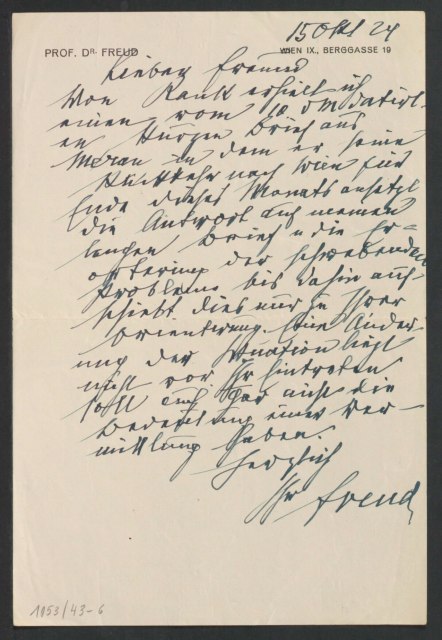 15 Okt 24
PROF. DR. FREUD
WIEN IX., BERGGASSE 19
Lieber Freund
Von Rank erhielt ich
einen vom 10 d M datirt-
en kurzen Brief aus
Meran in dem er seine
Rückkehr nach Wien für
Ende dieses Monats ansetzt
die Antwort auf meinen
Brief u die Er-
örterung der schwebenden
Probleme bis dahin auf-
schiebt. Dies nur zu Ihrer
Orientirung. Eine Änder
ung der Situation liegt
nicht vor. Ihr Eintreten
soll auch gar nicht die
Bedeutung einer Ver-
mittlung haben.
Herzlich
Ihr Freud
1053/43-6